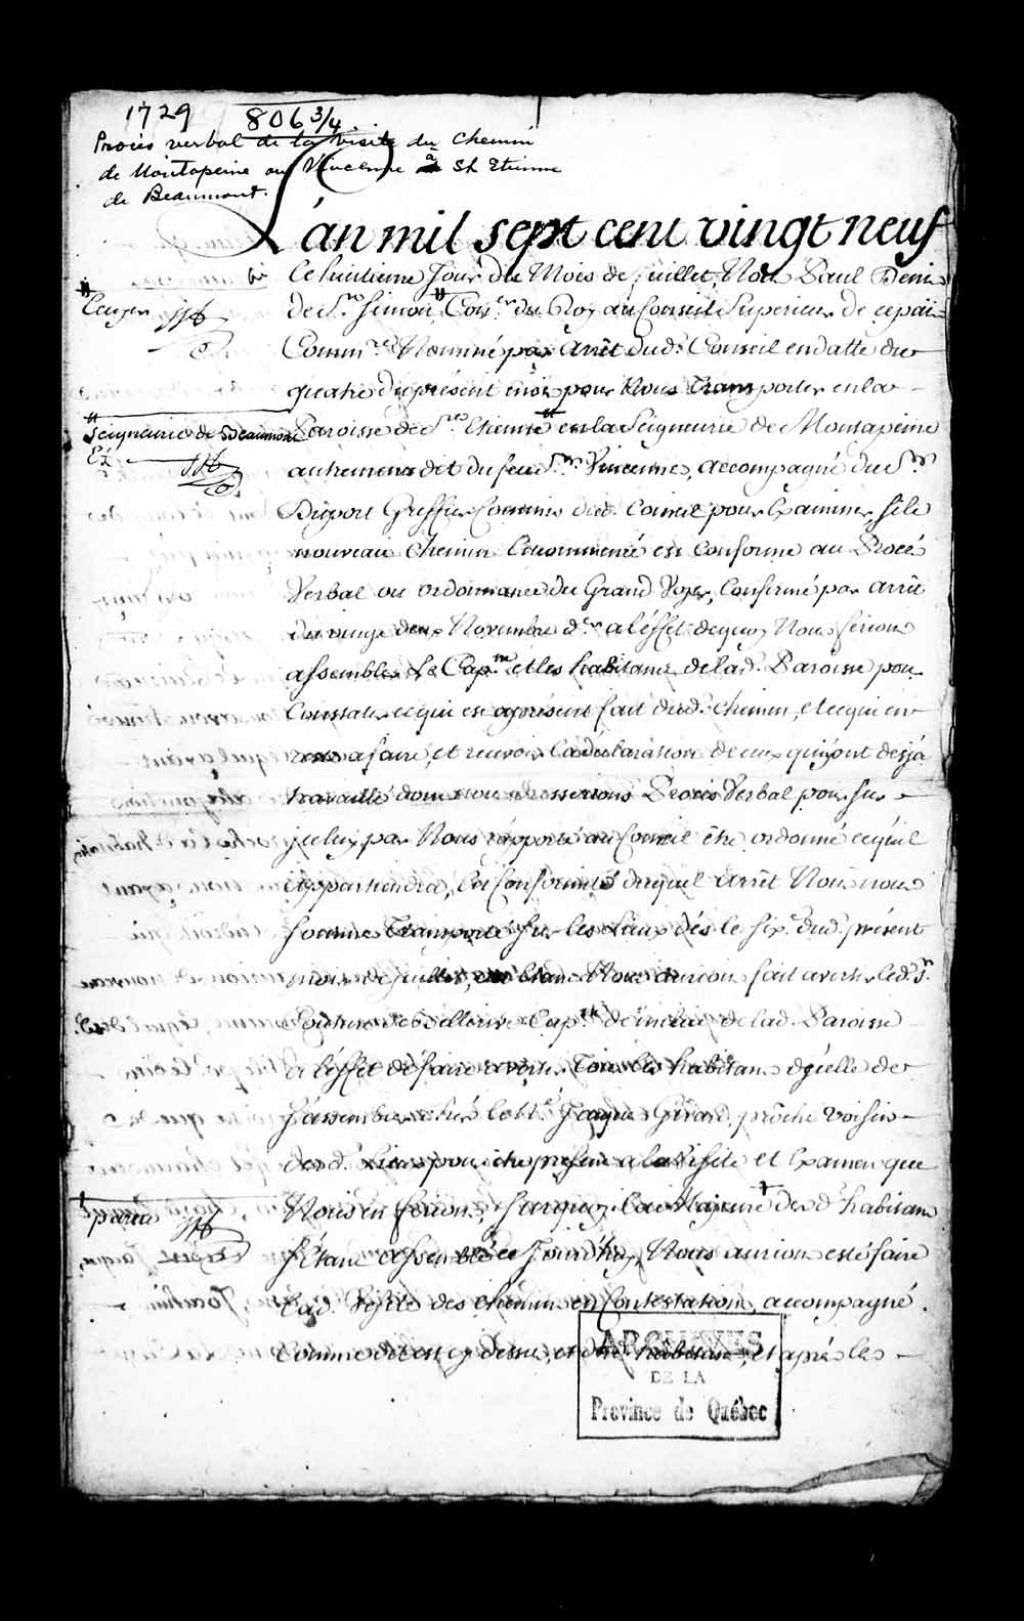 1729 806 3/4
Procès verbal de la visite du chemin
de Montapeine ou Vincenne à St Etienne
de Beaumont.
L'an mil sept cent vingt neuf
Le huitieme Jour du Mois de Juillet, Nous Paul Denis
de St. Simon, Con.er du Roy au Conseil Superieur de ce païs
Ecuyer
Comm.re Nommé par Arrêt dud. Conseil en datte du
quatre du présent mois pour Nous Transporter en la
Paroisse de St. Etienne en la Seigneurie de Montapeine
Seigneurie de Beaumont
Et
autrement dit du feu Sr. Vincennes, accompagné du Sr.
Greffier Commis dud. Conseil pour Examiner si le
nouveau chemin est conforme au Procés
Verbal ou ordonnance du Grand Voyer, Confirmé par arrêt
du vingt deux Novembre d.er a l'effet dequoy Nous ferions
assembler Le Cap.ne et les habitans de lad. Paroisse pour
Constater ce qui est aprésent fait dud. chemin, et ce qui en
reste a faire, et recevoir la declaration de ceux qui y ont desja
travaillé dont nous dresserions Procés Verbal pour sur
jceluy par Nous rapporté au Conseil être ordonné ce qu'il
appartiendra, En Conformité duquel arrêt Nous nous
somme Transporté sur les Lieux dés le six.e dud. présent
mois de juillet, Nous aurions fait avertir led. Sr.
Couture de Bellerive Cap.ne de milice de lad. Paroisse
a l'effet de faire avertir Tous les habitans d'jcelle de
s'assembler chés le nommé Jacques Girard, proche voisin
desd. Lieux pour être present a la Visite et Examen que
Nous en ferions, surquoy la Majeure desd. habitans
partie
s'étant assemblée ce Jourd'huy, Nous aurions esté faire
Lad. Visite des chemins en Contestation, accompagné
comme dit est cy dessus, et des habitans, et aprés les
ARCHIVES
DE LA
Province de Québec